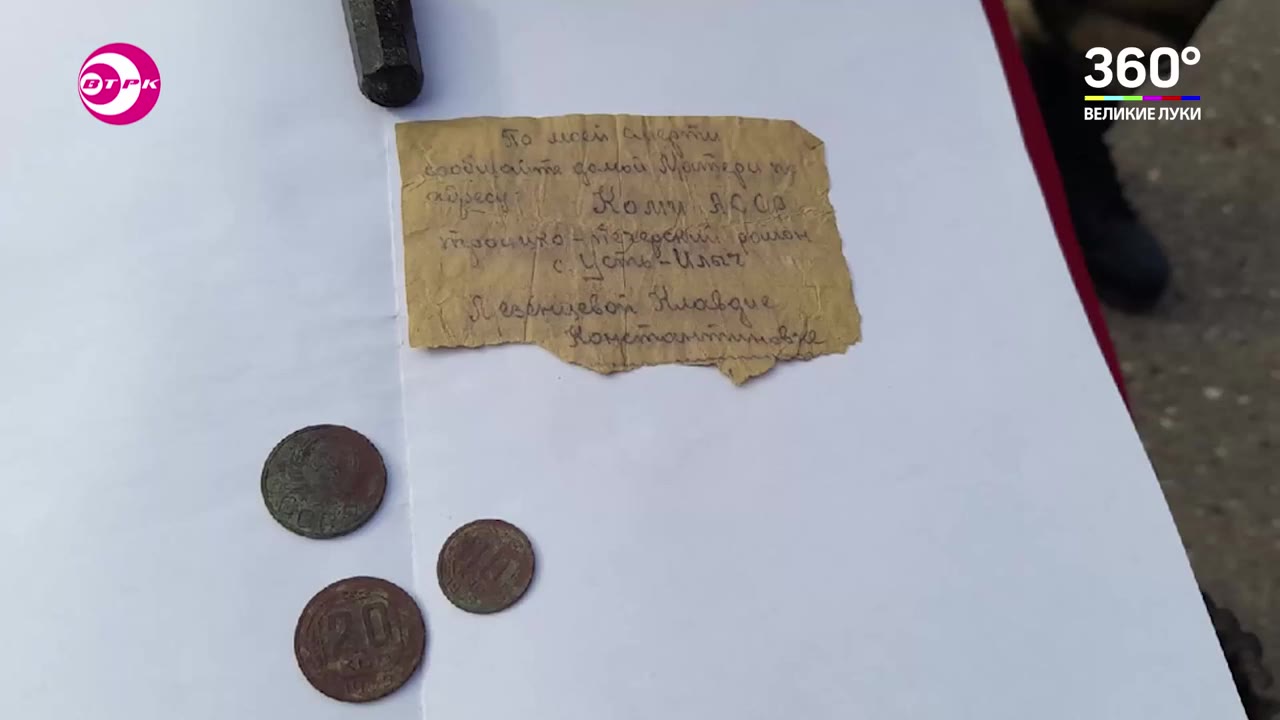 ВТРК
360°
ВЕЛИКИЕ ЛУКИ
По моей смерти
сообщайте домой Матери по
адресу: Коми АССР
троицко-печерский район
с. Усть-Илыч
Лезенцевой Клавдие
Константиновне
СССР
20